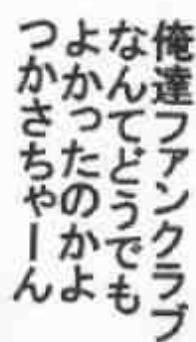 俺達ファンクラブ
なんてどうでも
よかったのかよ
つかさちゃーん